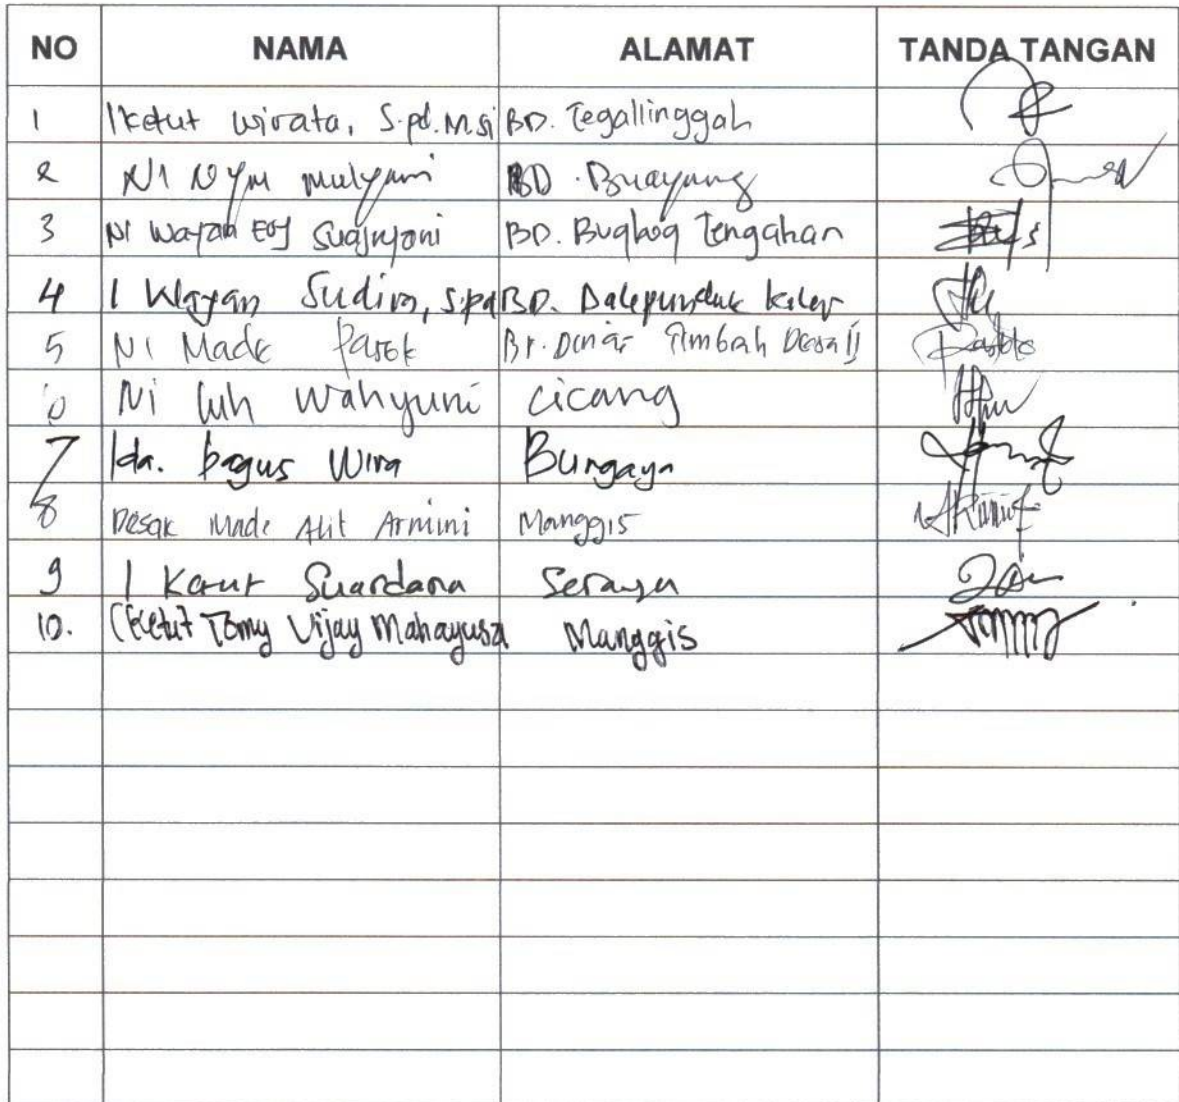 NO NAMA ALAMAT TANDA TANGAN
1 I Ketut Wirata, S.pd.M.si BD. Tegallinggah
2 Ni Nym Mulyani BD. Buayang
3 Ni Wayan Suajnyani BD. Bugbug Tengahan
4 I Wayan Sudira, S.pd BD. Kaler
5 Ni Made Parok Br. Timbah
6 Ni Luh Wahyuni Cicang
7 Ida. bagus Wira Bungaya
8 Desak Made Alit Armini Manggis
9 I Ketut Suardana Seraya
10. I Ketut Tomy Vijay Mahayusa Manggis